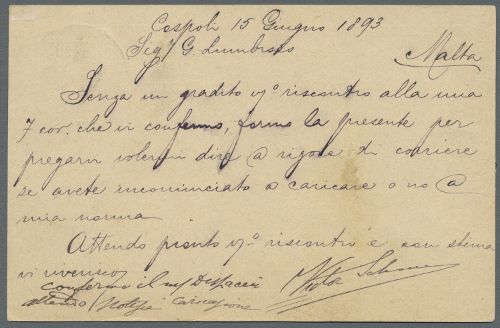 Cospoli 15 Giugno 1893
Sig. G. Lumbroso
Malta
Senza un gradito vo. riscontro alla mia
7 cor. che vi confermo, formo la presente per
pregarvi volermi dire @ rigore di corriere
se avete incominciato a caricare o no @
mia norma.
Attendo pronto vo. riscontro e con stima
vi riverisco
confermo il mio Dispaccio
attendo notizie caricazione